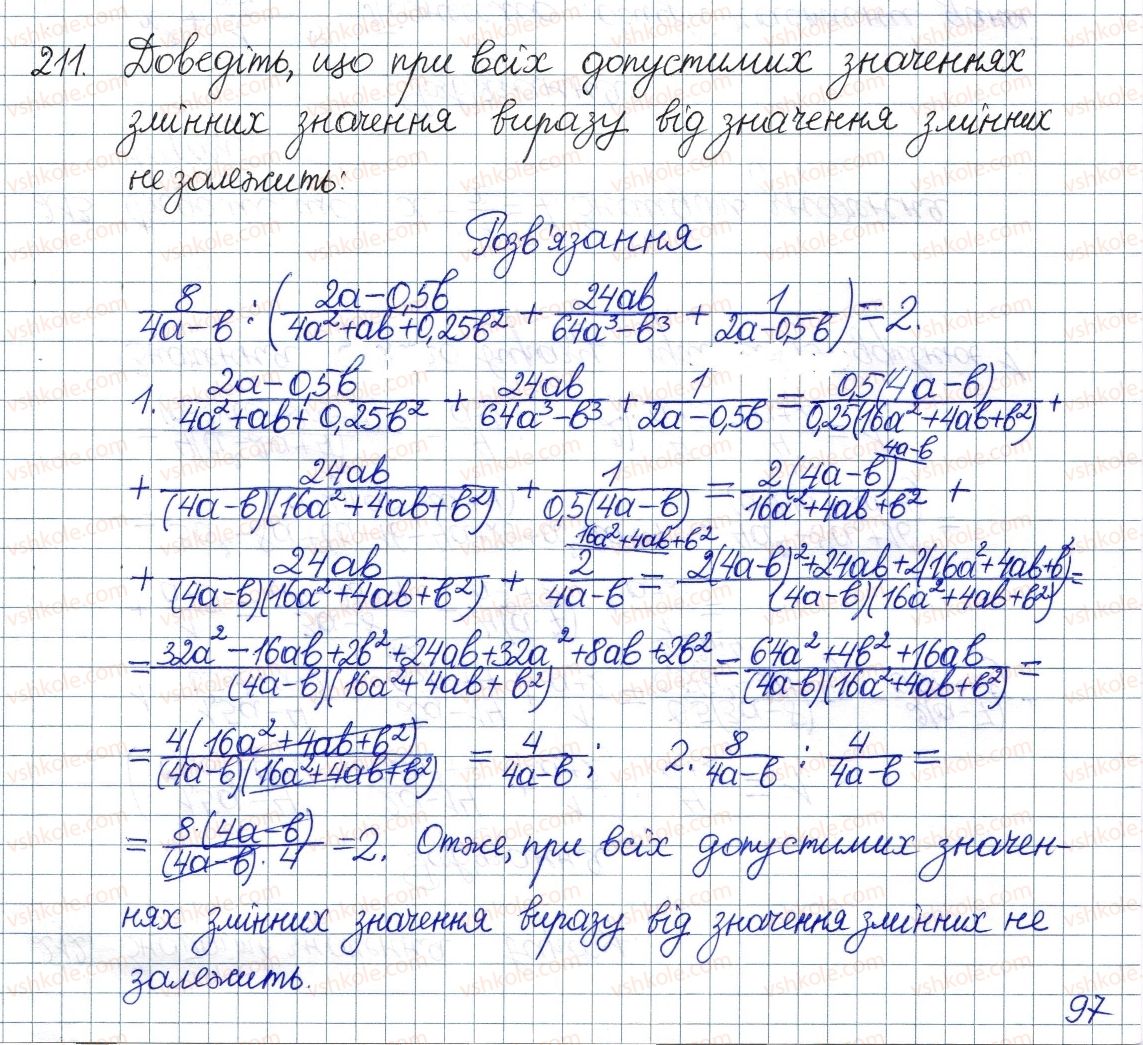 211. Доведіть, що при всіх допустимих значеннях
змінних значення виразу від значення змінних
не залежить:
Розв'язання
8/(4a-b) : ((2a-0,5b)/(4a²+ab+0,25b²) + 24ab/(64a³-b³) + 1/(2a-0,5b)) = 2.
1. (2a-0,5b)/(4a²+ab+0,25b²) + 24ab/(64a³-b³) + 1/(2a-0,5b) = 0,5(4a-b)/(0,25(16a²+4ab+b²)) +
+ 24ab/((4a-b)(16a²+4ab+b²)) + 1/(0,5(4a-b)) = 2(4a-b)/(16a²+4ab+b²) ^(4a-b) +
+ 24ab/((4a-b)(16a²+4ab+b²)) + 2/(4a-b) ^(16a²+4ab+b²) = (2(4a-b)²+24ab+2(16a²+4ab+b²))/((4a-b)(16a²+4ab+b²)) =
= (32a²-16ab+2b²+24ab+32a²+8ab+2b²)/((4a-b)(16a²+4ab+b²)) = (64a²+4b²+16ab)/((4a-b)(16a²+4ab+b²)) =
= 4(16a²+4ab+b²)/((4a-b)(16a²+4ab+b²)) = 4/(4a-b); 2. 8/(4a-b) : 4/(4a-b) =
= 8·(4a-b)/((4a-b)·4) = 2. Отже, при всіх допустимих значен-
нях змінних значення виразу від значення змінних не
залежить.
97